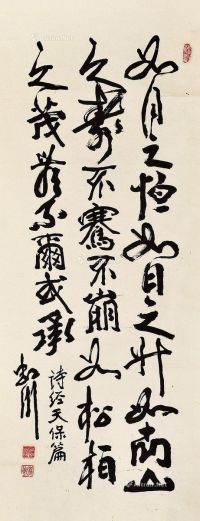 如月之恒如日之升如南山
之壽不騫不崩如松柏
之茂無不爾或承
诗经天保篇